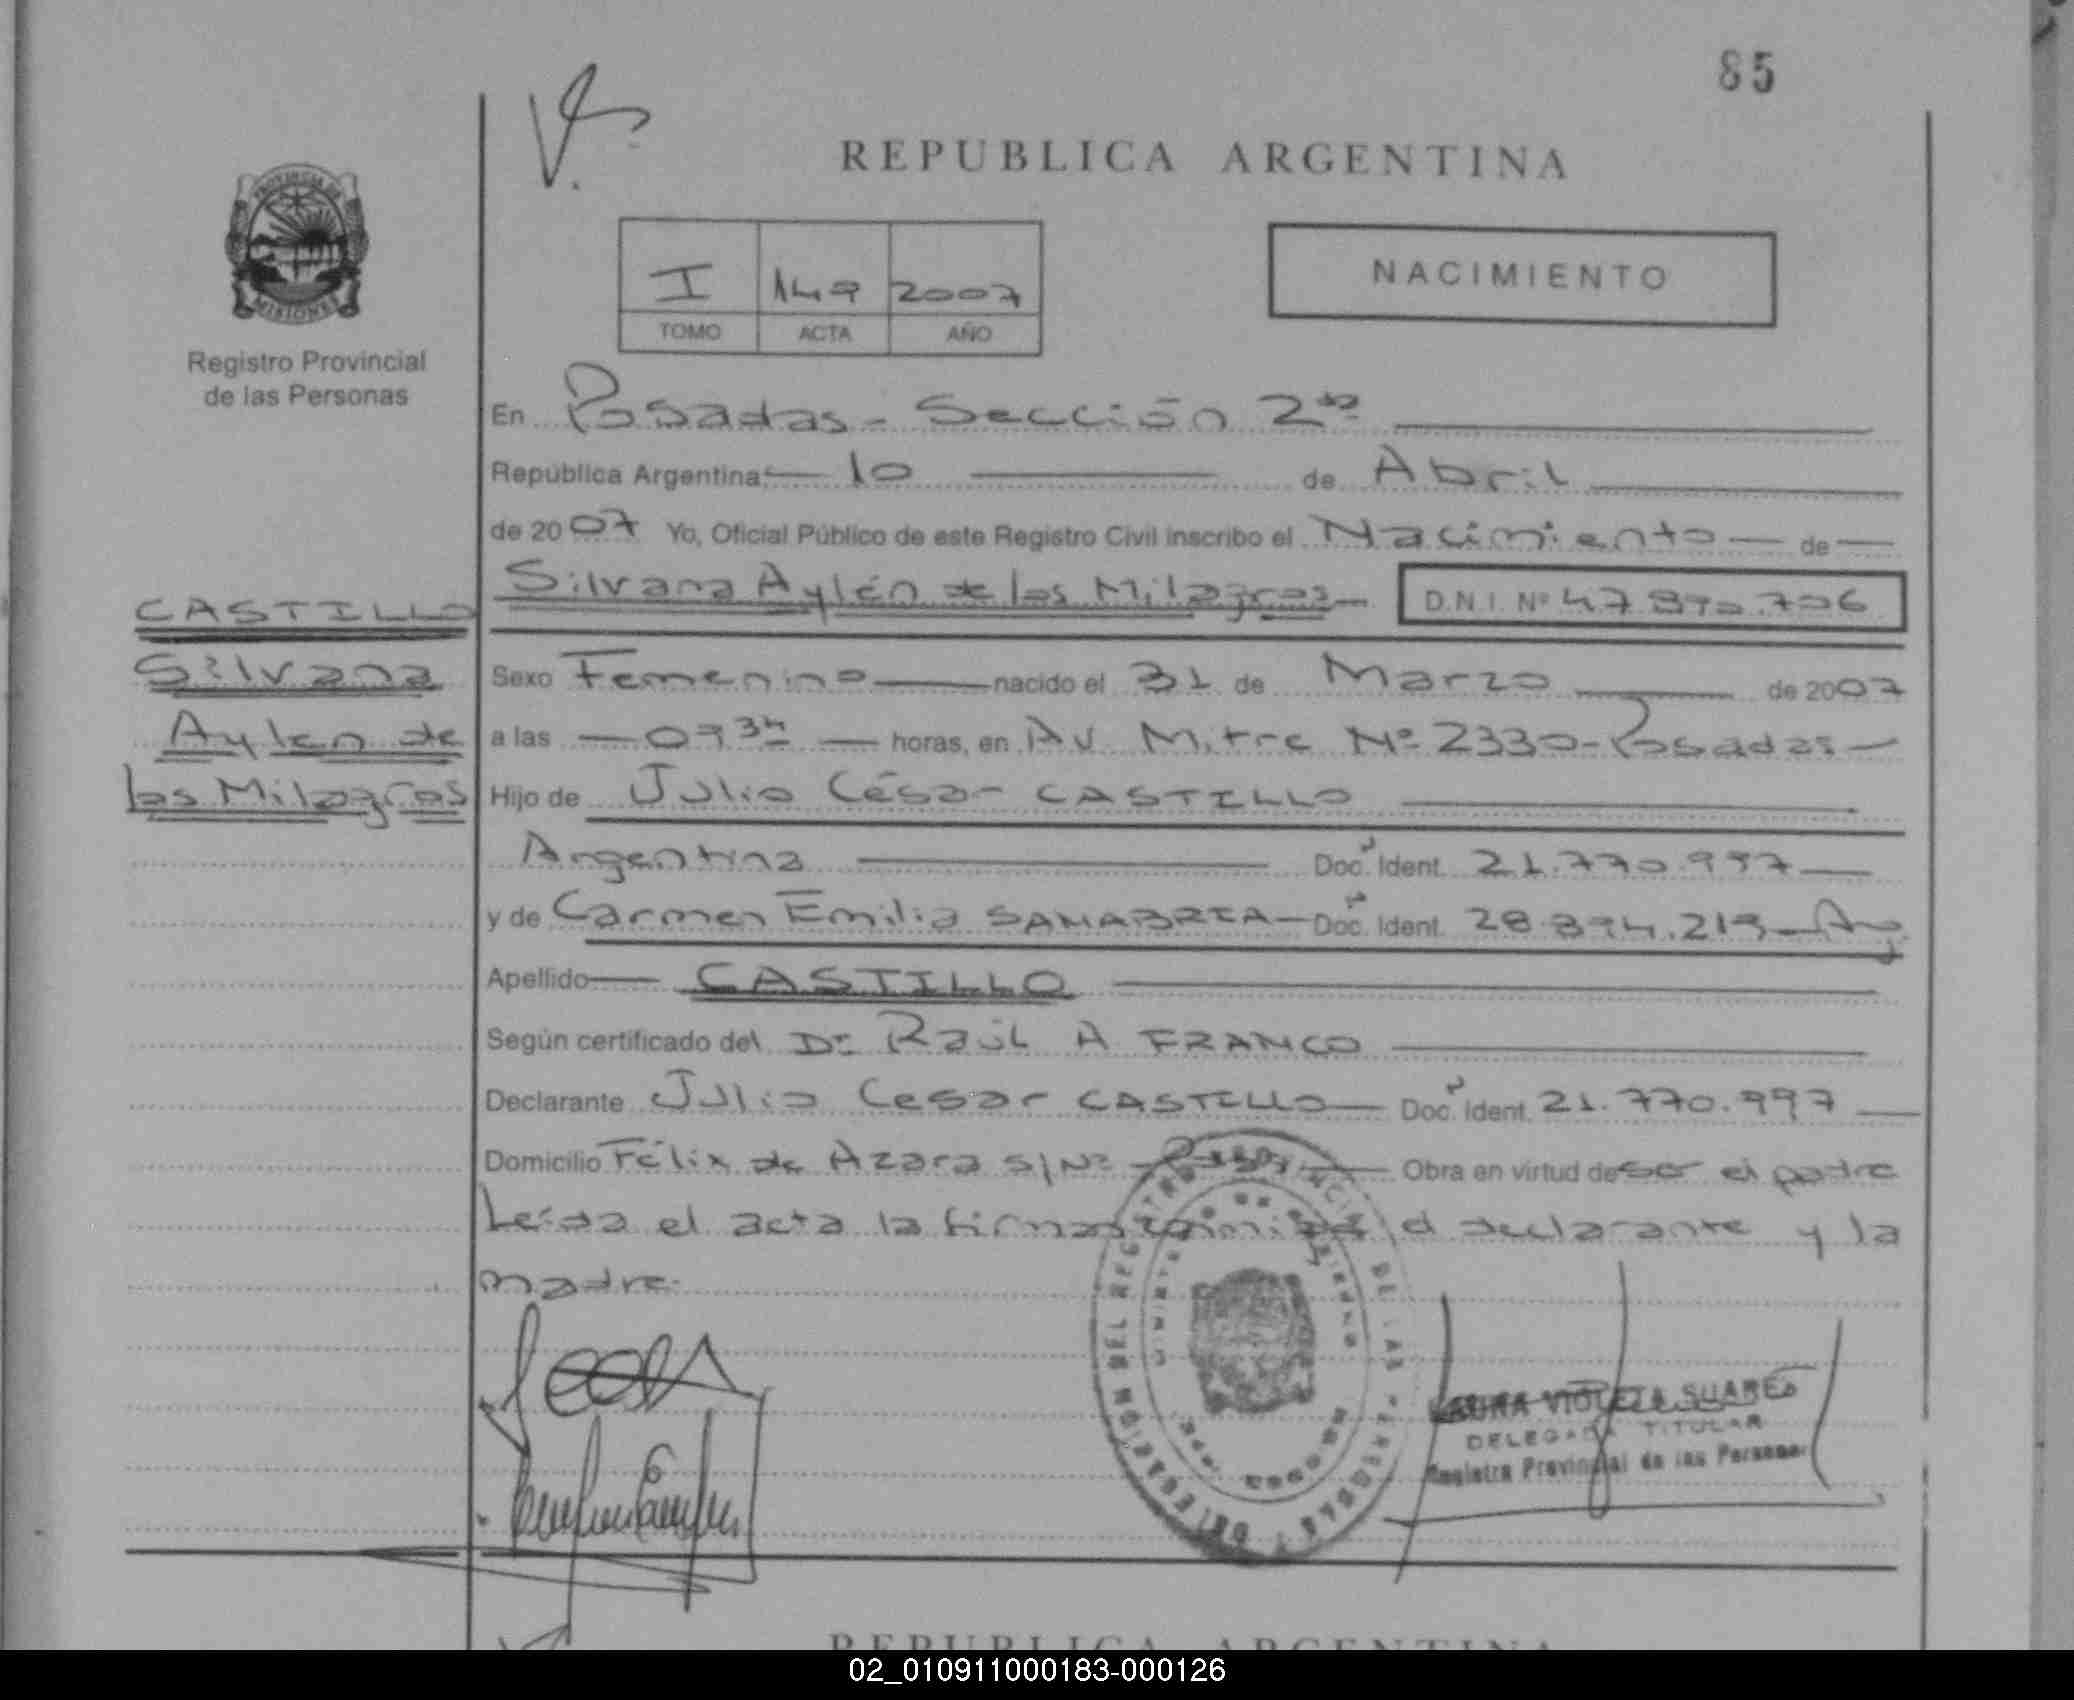 85
REPUBLICA ARGENTINA
PROVINCIA DE
MISIONES
Registro Provincial
de las Personas
I 149 2007
TOMO ACTA AÑO
NACIMIENTO
En Posadas - Sección 2da
República Argentina: 10 de Abril
de 2007 Yo, Oficial Público de este Registro Civil inscribo el Nacimiento de
Silvana Aylén de los Milagros D.N.I. Nº 47.890.706
CASTILLO
Silvana
Aylen de
los Milagros
Sexo Femenino nacido el 31 de Marzo de 2007
a las 09 34 horas, en Av. Mitre Nº 2330 - Posadas
Hijo de Julio César CASTILLO
Argentina Doc. Ident. 21.770.997
y de Carmen Emilia SANABRIA Doc. Ident. 28.894.219
Apellido CASTILLO
Según certificado del Dr Raúl A FRANCO
Declarante Julio Cesar CASTILLO Doc. Ident. 21.770.997
Domicilio Félix de Azara S/Nº Obra en virtud de ser el padre
Leída el acta la firman conmigo el declarante y la
madre.
LAURA VIOLETA SUAREZ
DELEGADA TITULAR
Registro Provincial de las Personas
REPUBLICA ARGENTINA
02_010911000183-000126